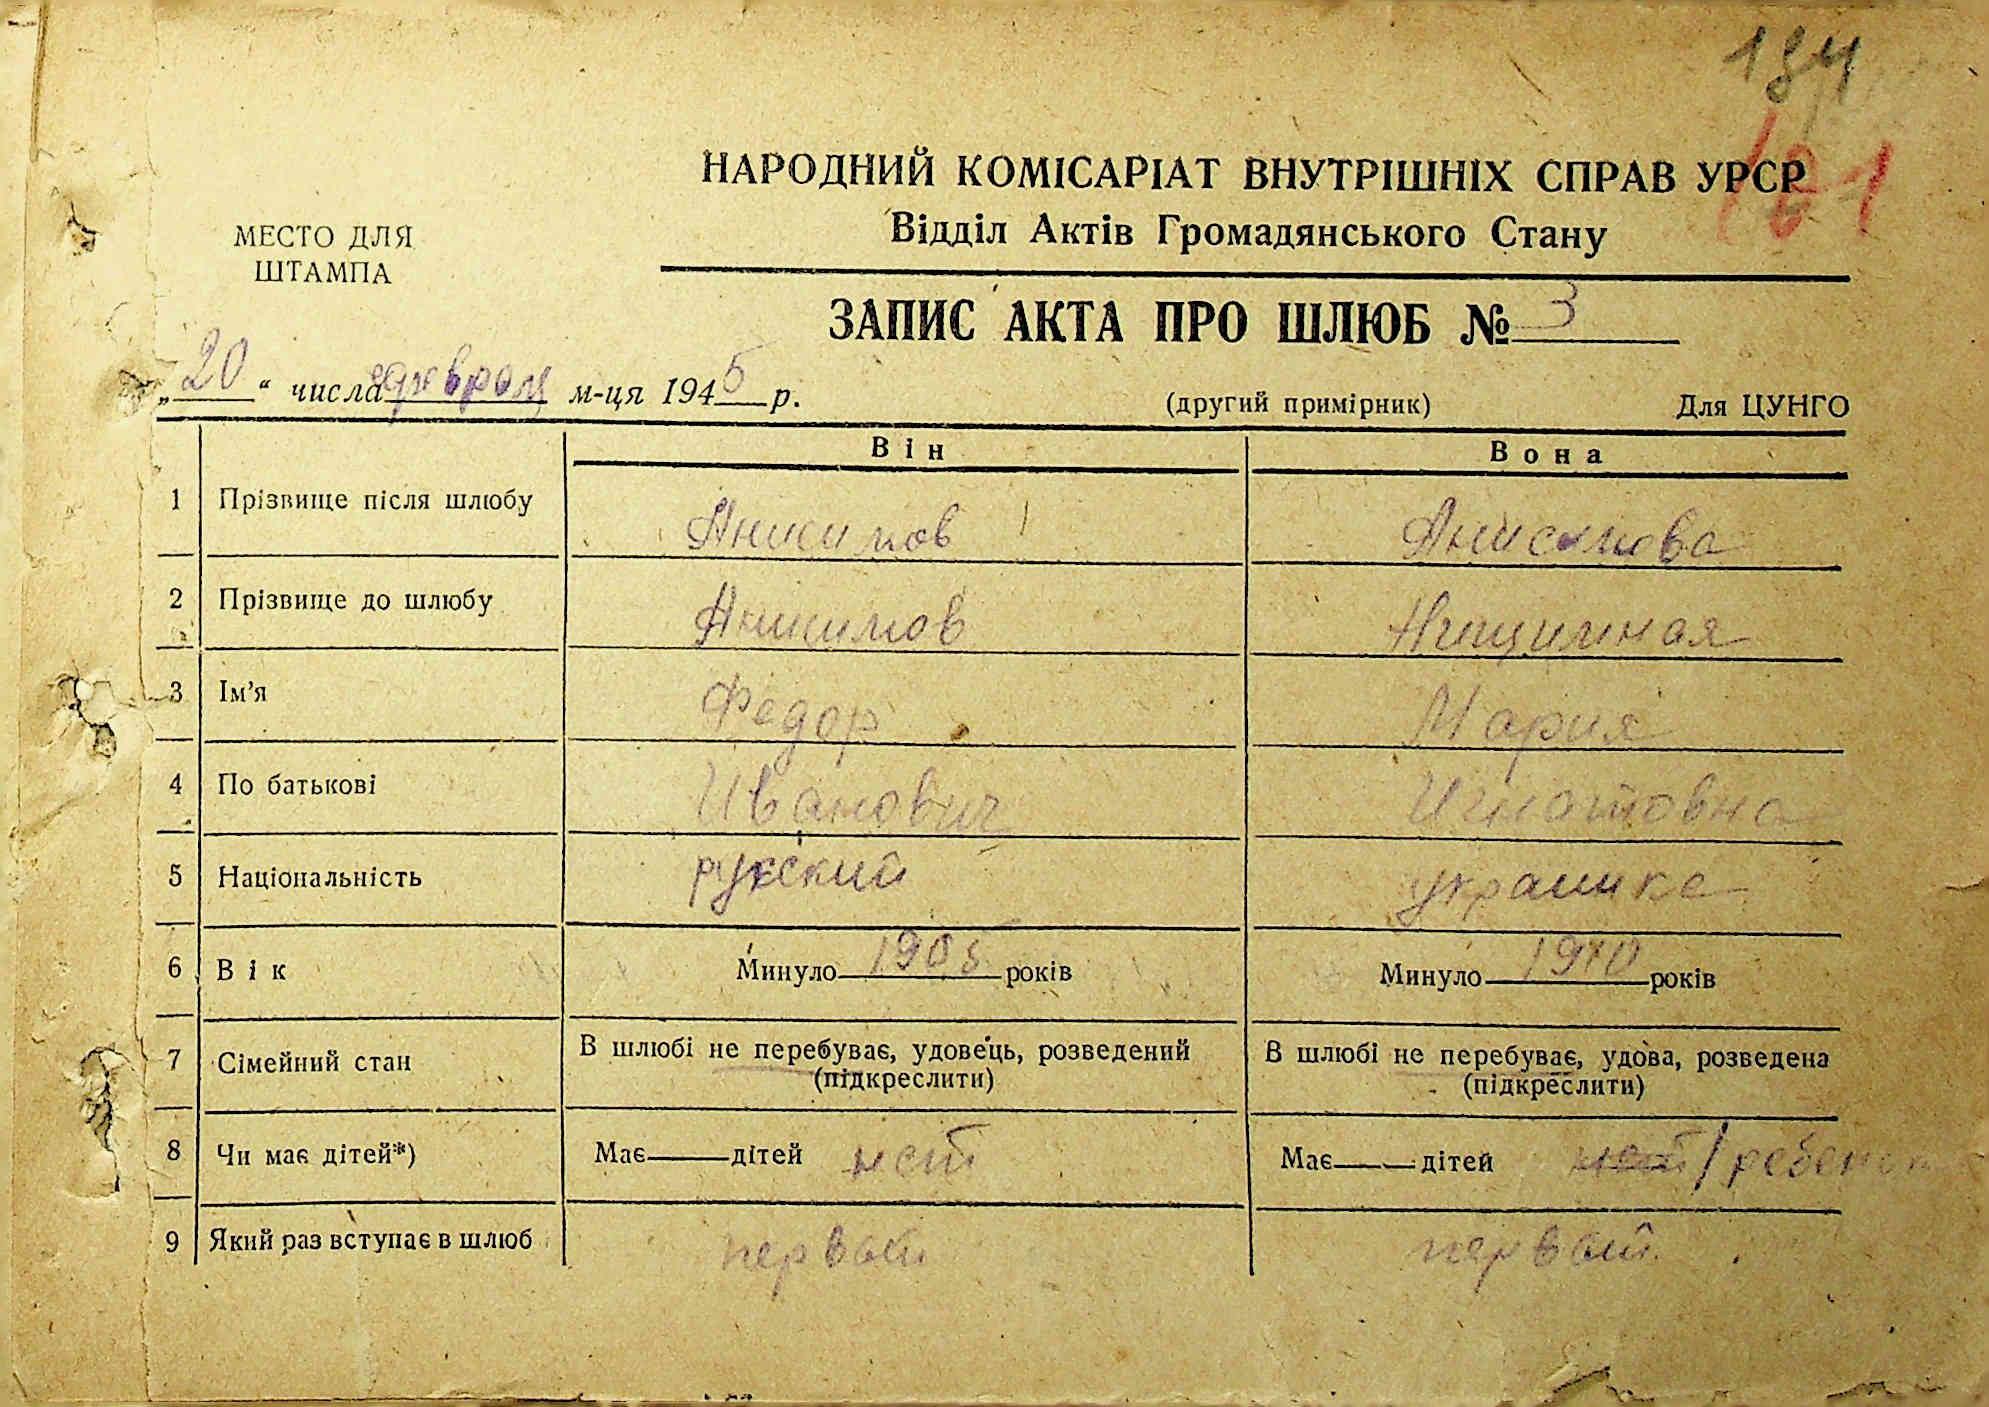 184
181
НАРОДНИЙ КОМІСАРІАТ ВНУТРІШНІХ СПРАВ УРСР
Відділ Актів Громадянського Стану
МЕСТО ДЛЯ
ШТАМПА
ЗАПИС АКТА ПРО ШЛЮБ № 3
„20“ числа февраля м-ця 1945 р.
(другий примірник) Для ЦУНГО
Він Вона
1 Прізвище після шлюбу Анисимов Анисимова
2 Прізвище до шлюбу Анисимов
3 Ім’я Федор Мария
4 По батькові Иванович Игнатовна
5 Національність русский
6 Вік Минуло 1905 років Минуло 1910 років
7 Сімейний стан В шлюбі не перебуває, удовець, розведений (підкреслити) В шлюбі не перебуває, удова, розведена (підкреслити)
8 Чи має дітей*) Має дітей нет Має дітей нет 1 ребенок
9 Який раз вступає в шлюб первый первый